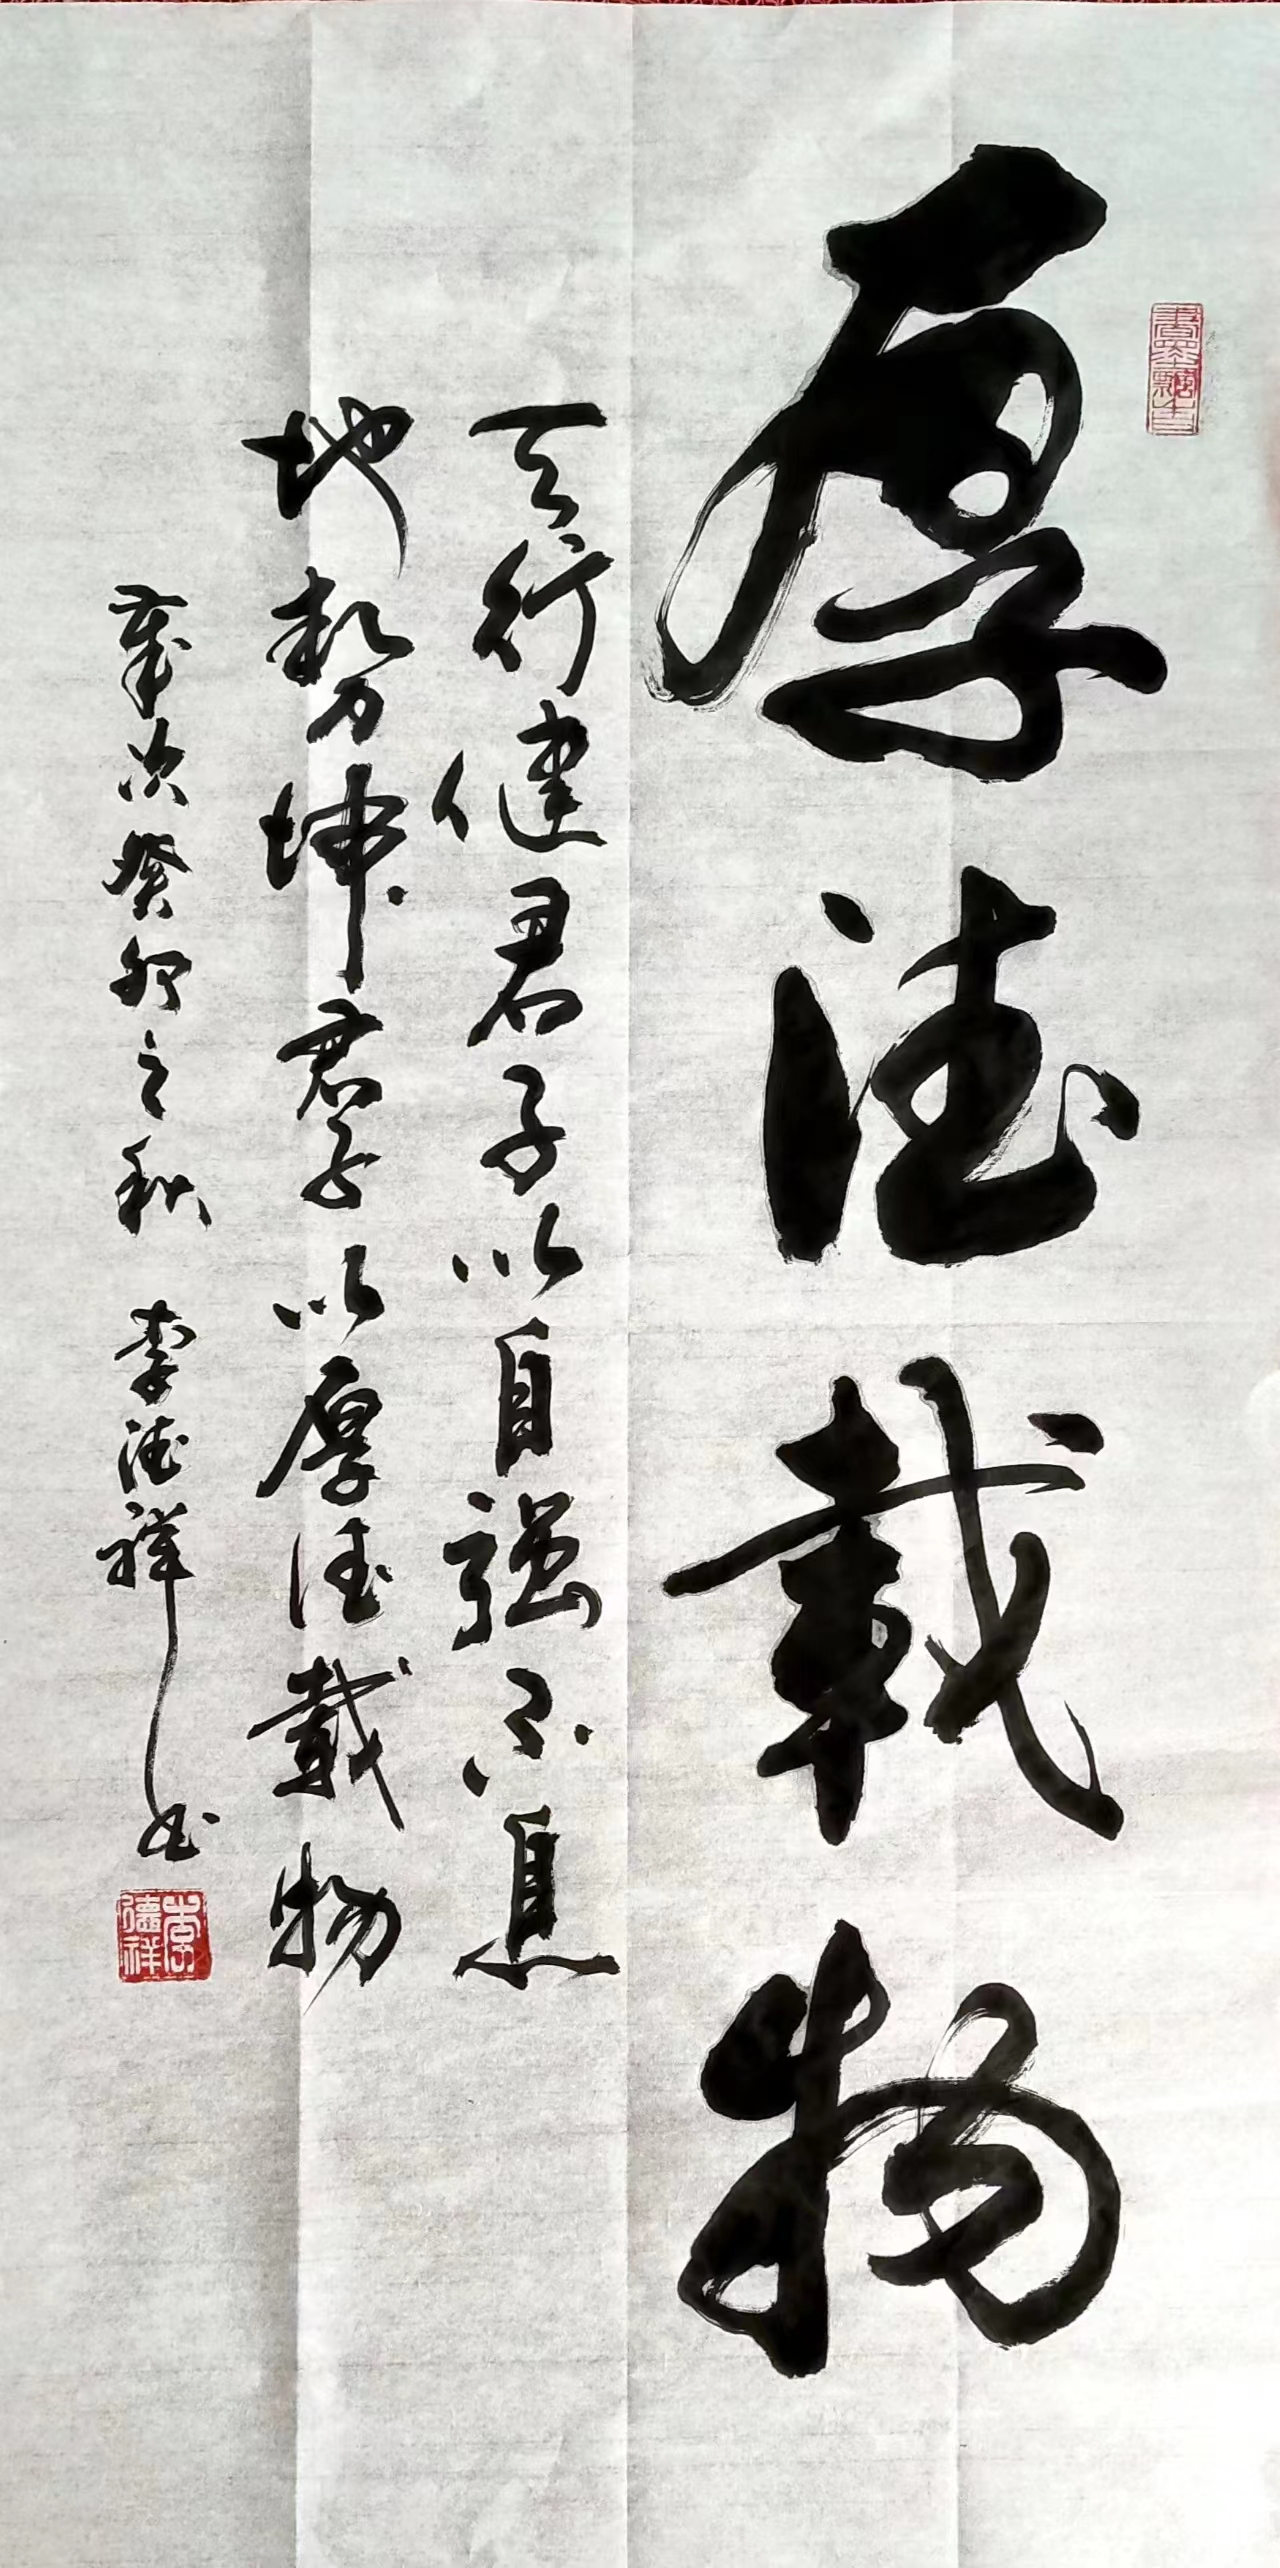 厚德载物
天行健君子以自强不息
地势坤君子以厚德载物
岁次癸卯之秋 李德祥书
李德祥